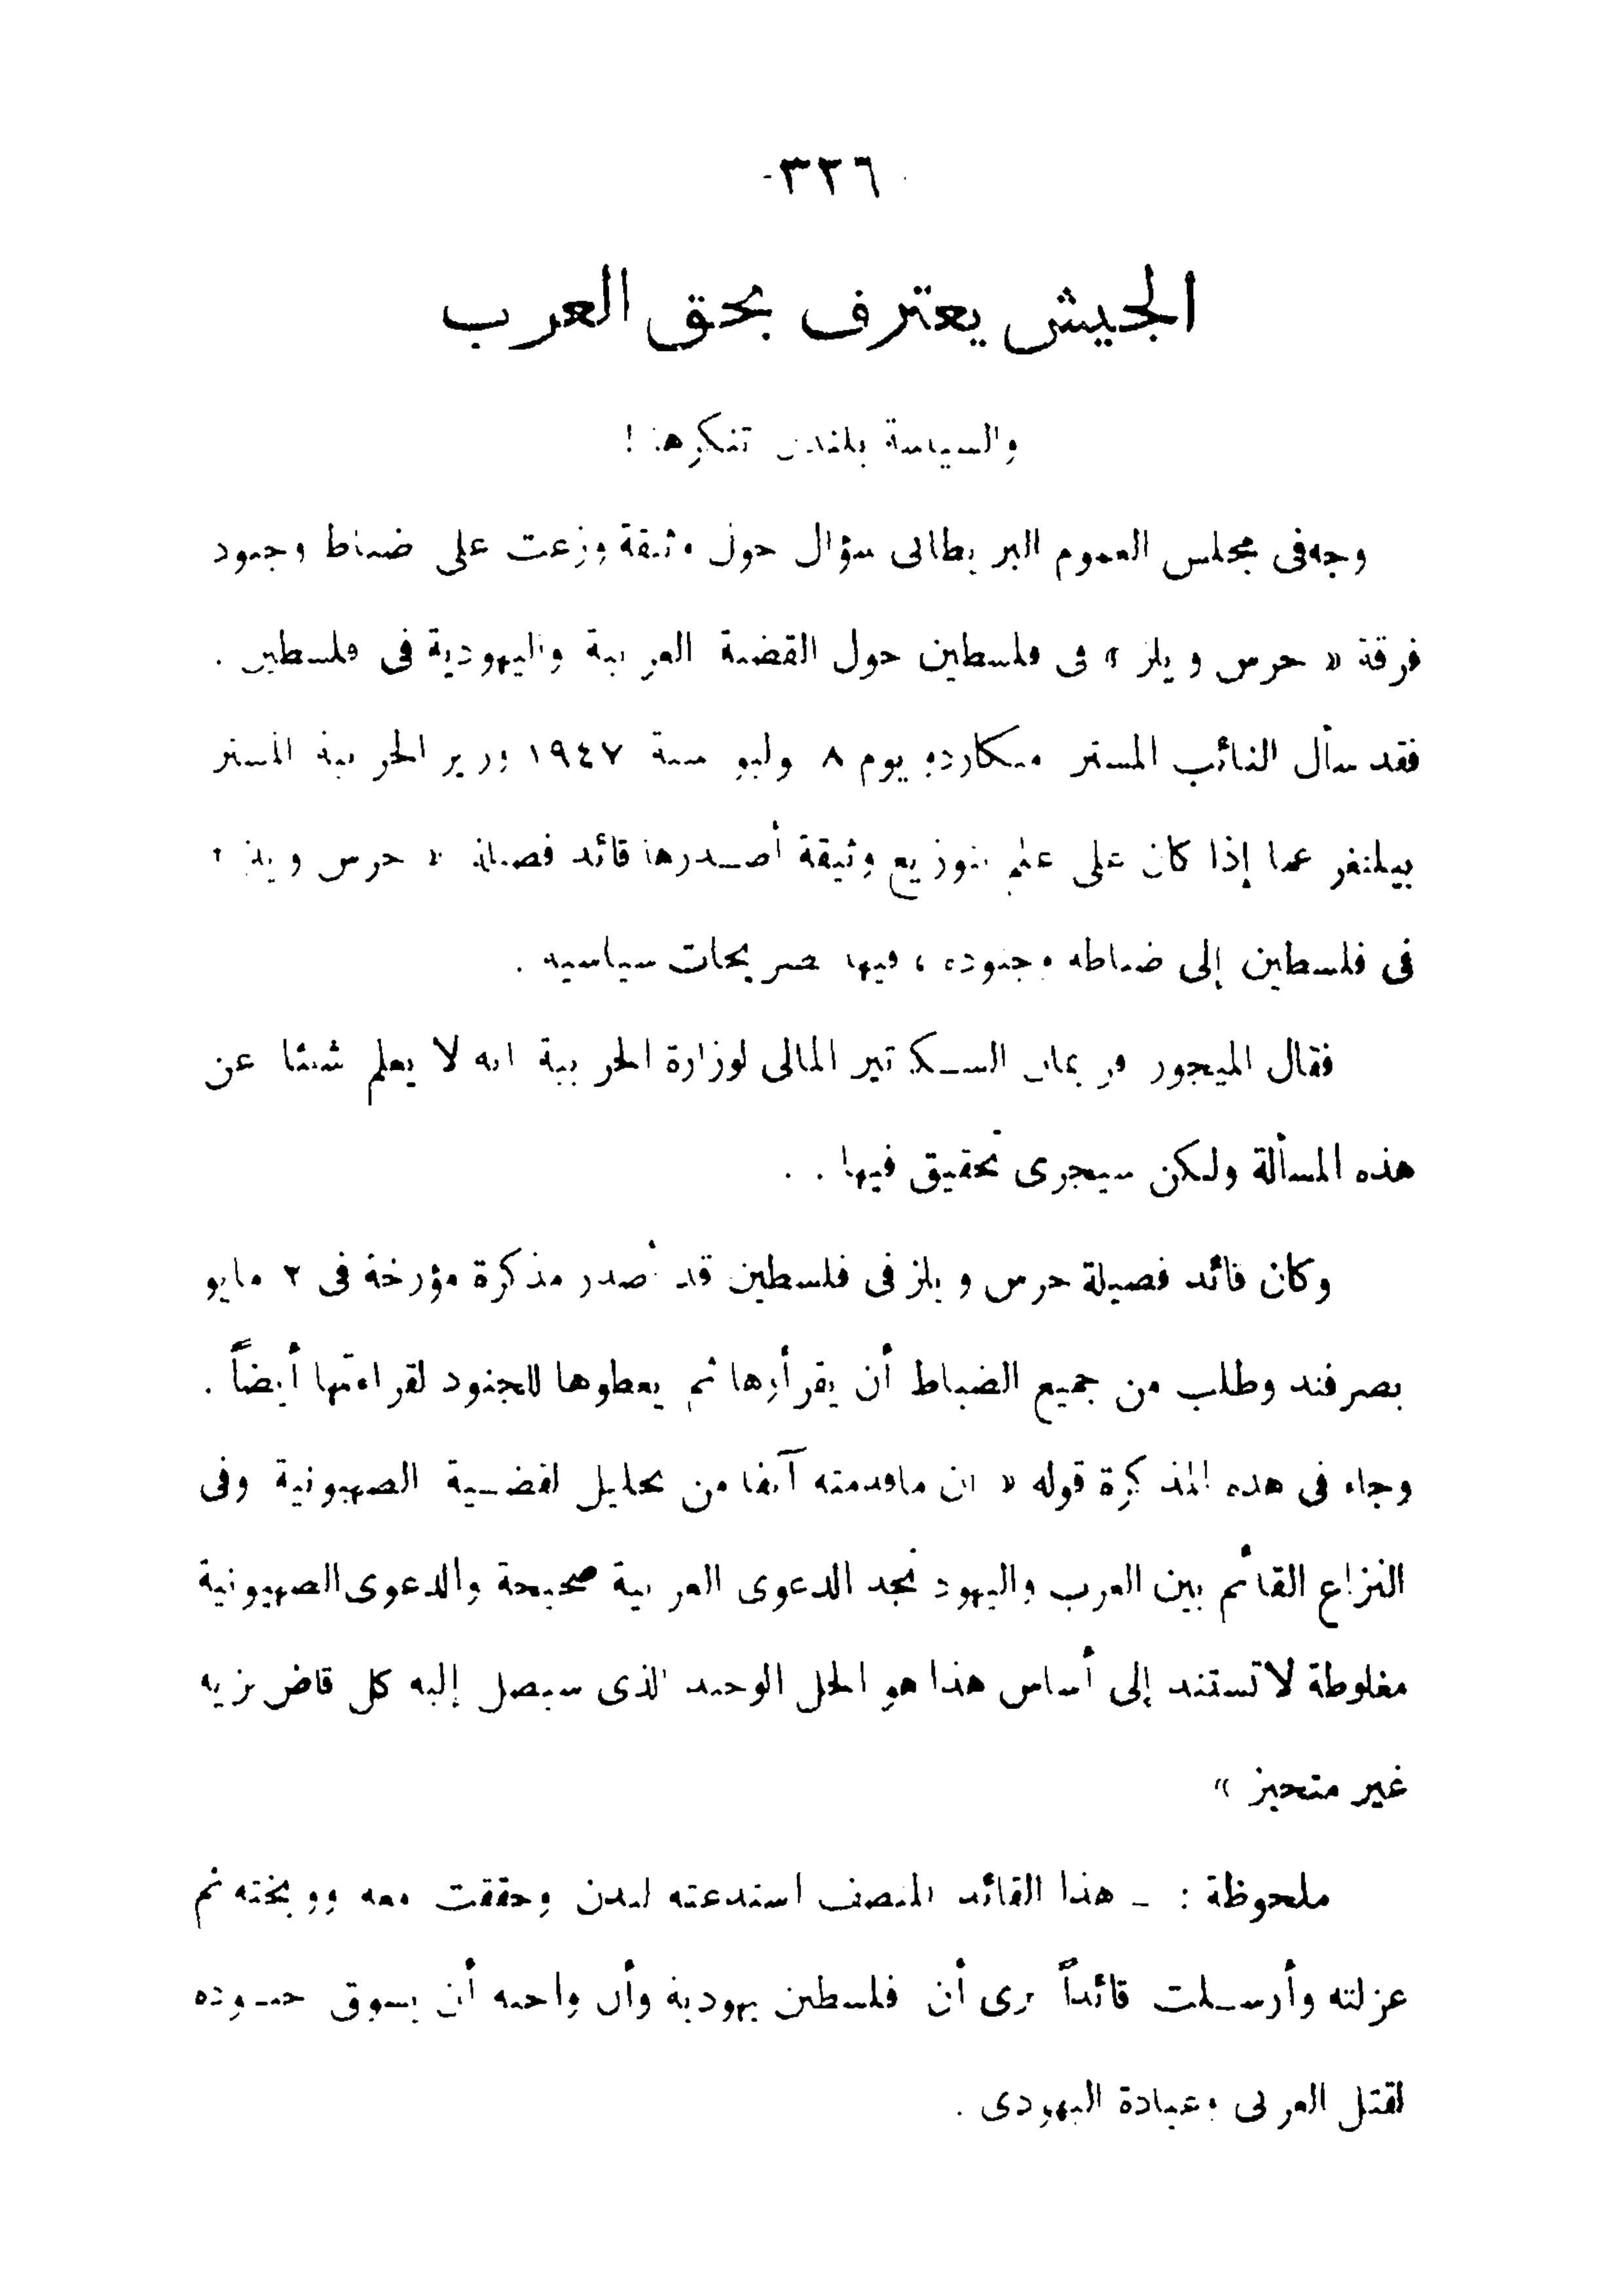 -٣٢٦-
الجيش يعترف بحق العرب
والسياسة بلندن تنكرها !
وجه فى مجلس العموم البريطانى سؤال حول وثيقة وزعت على ضباط وجنود
فرقة « حرس ويلز » فى فلسطين حول القضية العربية واليهودية فى فلسطين .
فقد سأل النائب المستر يوم ٨ يوليو سنة ١٩٤٧ وزير الحربية المستر
بيلنغر عما إذا كان على علم بتوزيع وثيقة أصدرها قائد فصيلة « حرس ويلز »
فى فلسطين إلى ضباطه وجنوده ، فيها تصريحات سياسيه .
فقال الميجور فريمان السكرتير المالى لوزارة الحربية انه لا يعلم شيئا عن
هذه المسألة ولكن سيجرى تحقيق فيها . .
وكان قائد فصيلة حرس ويلز فى فلسطين قد أصدر مذكرة مؤرخة فى ٢ مايو
بصرفند وطلب من جميع الضباط أن يقرأوها ثم يعطوها للجنود لقراءتها أيضاً .
وجاء فى هذه المذكرة قوله « ان ماقدمته آنفا من تحليل لقضية الصهيونية وفى
النزاع القائم بين العرب واليهود نجد الدعوى العربية صحيحة والدعوى الصهيونية
مغلوطة لاتستند إلى أساس هذا هو الحل الوحيد الذى سيصل إليه كل قاض نزيه
غير متحيز »
ملحوظة : ـ هذا القائد المنصف استدعته لندن وحققت معه ووبخته ثم
عزلته وأرسلت قائداً يرى أن فلسطين يهودية وأن واجبه أن يسوق جنوده
لقتل العربى وعبادة اليهودى .